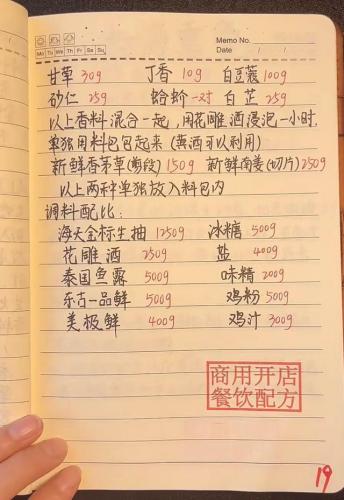 Memo No.
Mo Tu We Th Fr Sa Su
Date / /
甘草 30g 丁香 10g 白豆蔻 100g
砂仁 25g 蛤蚧 一对 白芷 25g
以上香料混合一起,用花雕酒浸泡一小时,
单独用料包包起来(黄酒可以利用)
新鲜香茅草(断段) 150g 新鲜南姜(切片) 250g
以上两种单独放入料包内
调料配比:
海天金标生抽 1250g 冰糖 500g
花雕酒 250g 盐 400g
泰国鱼露 500g 味精 200g
东古一品鲜 500g 鸡粉 500g
美极鲜 400g 鸡汁 300g
商用开店
餐饮配方
19